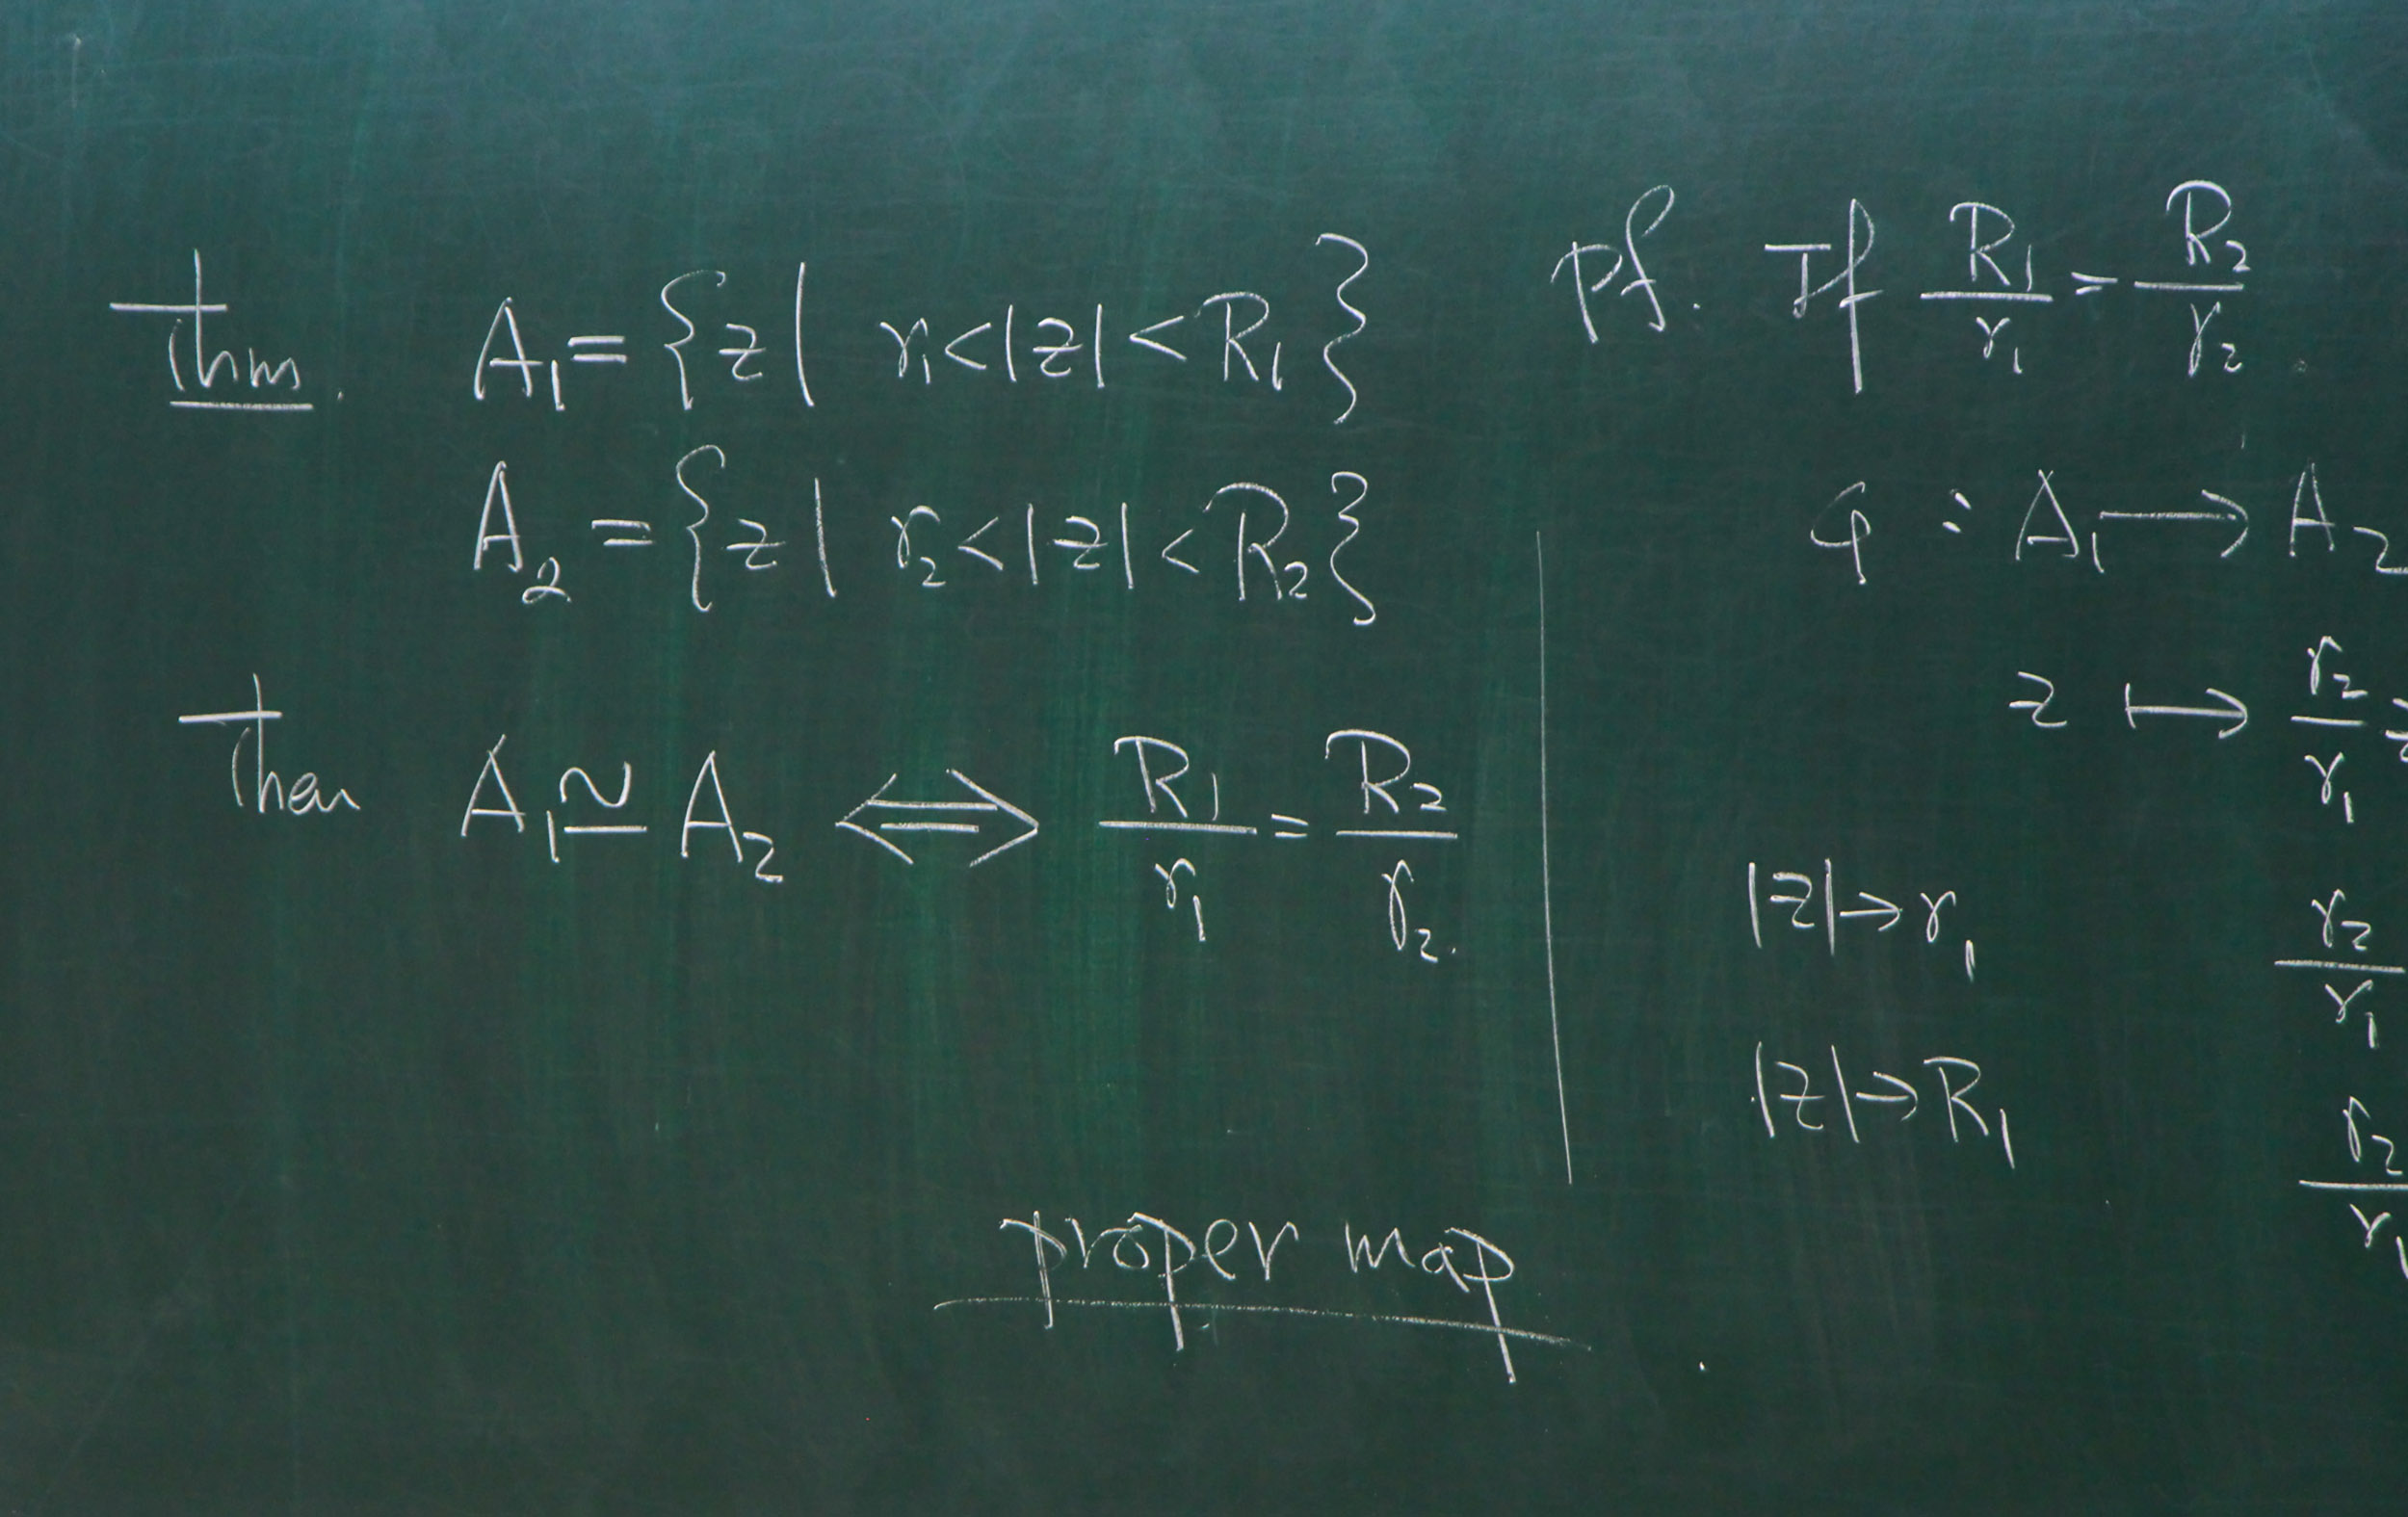 Thm. A₁ = {z | r₁<|z|<R₁}
A₂ = {z | r₂<|z|<R₂}
Then A₁ ≃ A₂ ⟺ R₁/r₁ = R₂/r₂.
proper map
pf. If R₁/r₁ = R₂/r₂.
φ : A₁ → A₂
z ↦ r₂/r₁ z
|z|→r₁ r₂/r₁
|z|→R₁ r₂/r₁